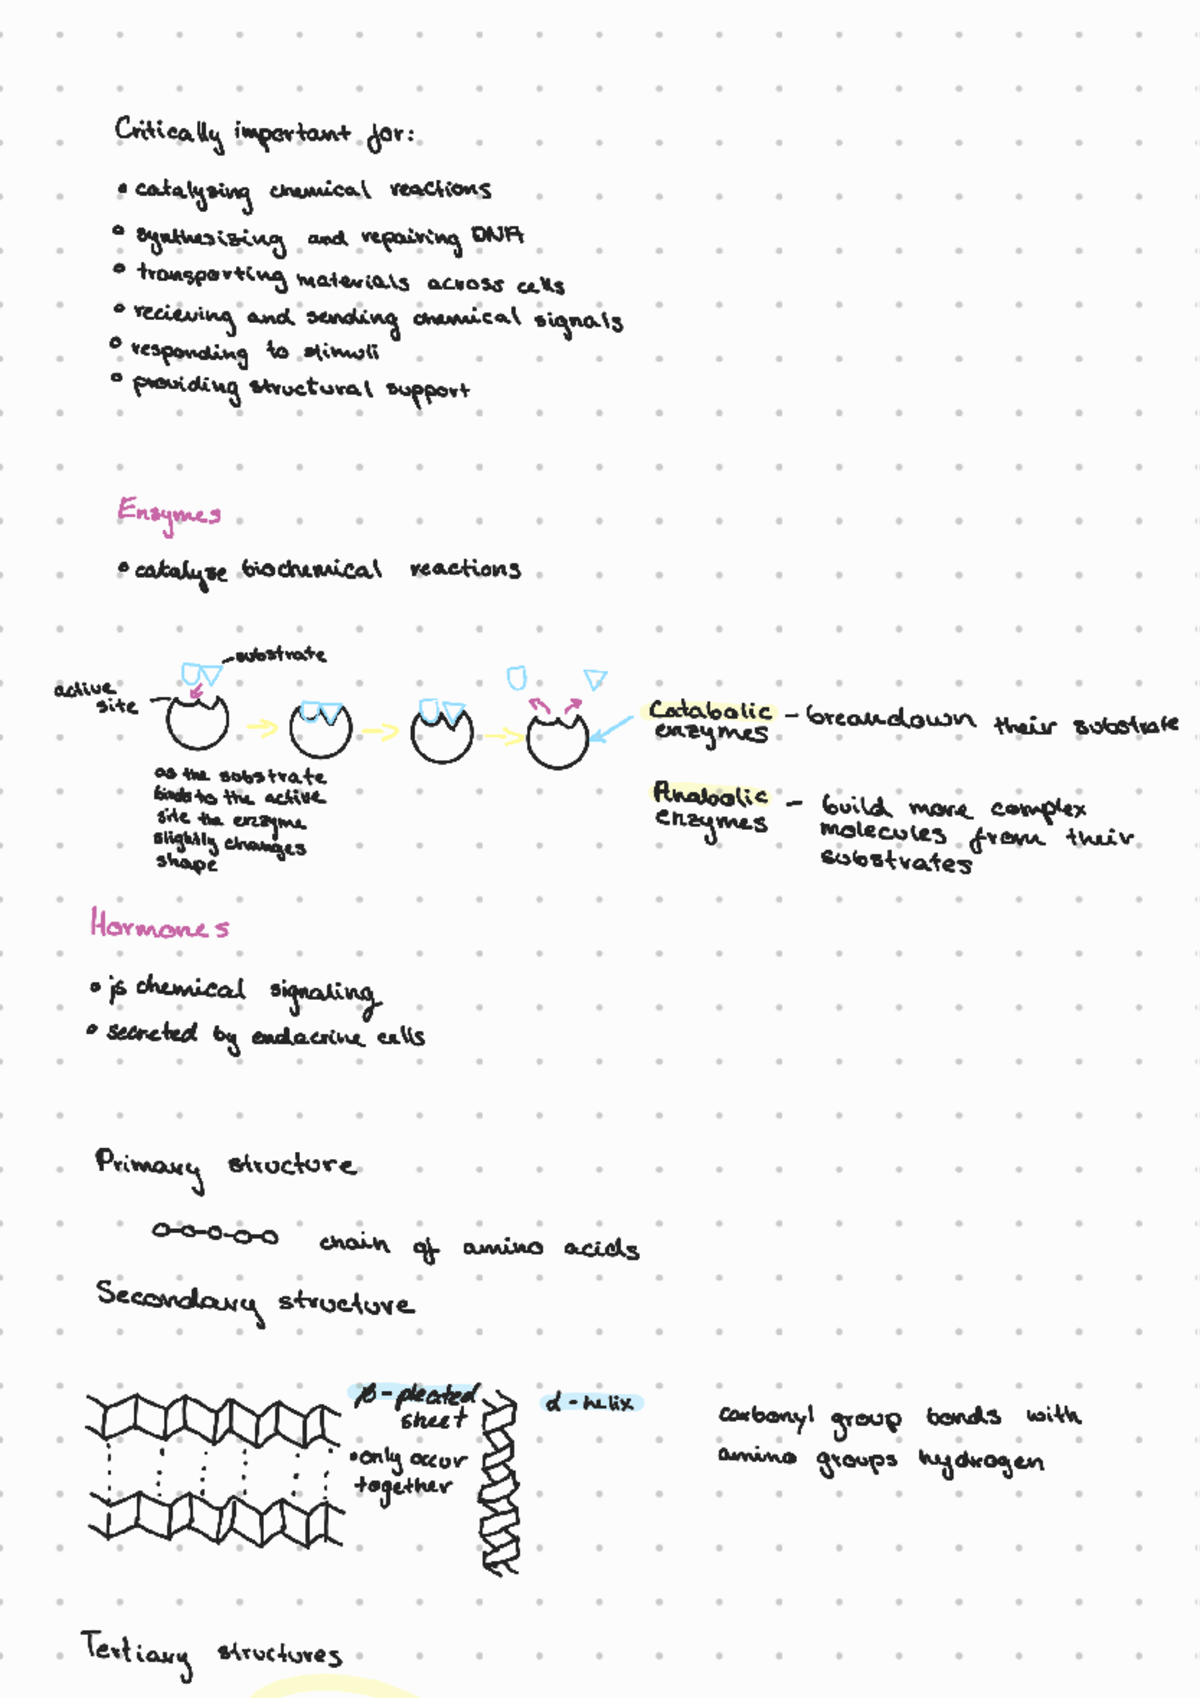 Critically important for:
• catalyzing chemical reactions
• synthesizing and repairing DNA
• transporting materials across cells
• recieving and sending chemical signals
• responding to stimuli
• providing structural support
Enzymes
• catalyze biochemical reactions
substrate
active
site
as the substrate
binds to the active
site the enzyme
slightly changes
shape
Catabolic – breakdown their substrate
enzymes
Anabolic – build more complex
enzymes molecules from their
substrates
Hormones
• is chemical signaling
• secreted by endocrine cells
Primary structure
chain of amino acids
Secondary structure
β-pleated
sheet
• only occur
together
α-helix
carbonyl group bonds with
amino groups hydrogen
Tertiary structures